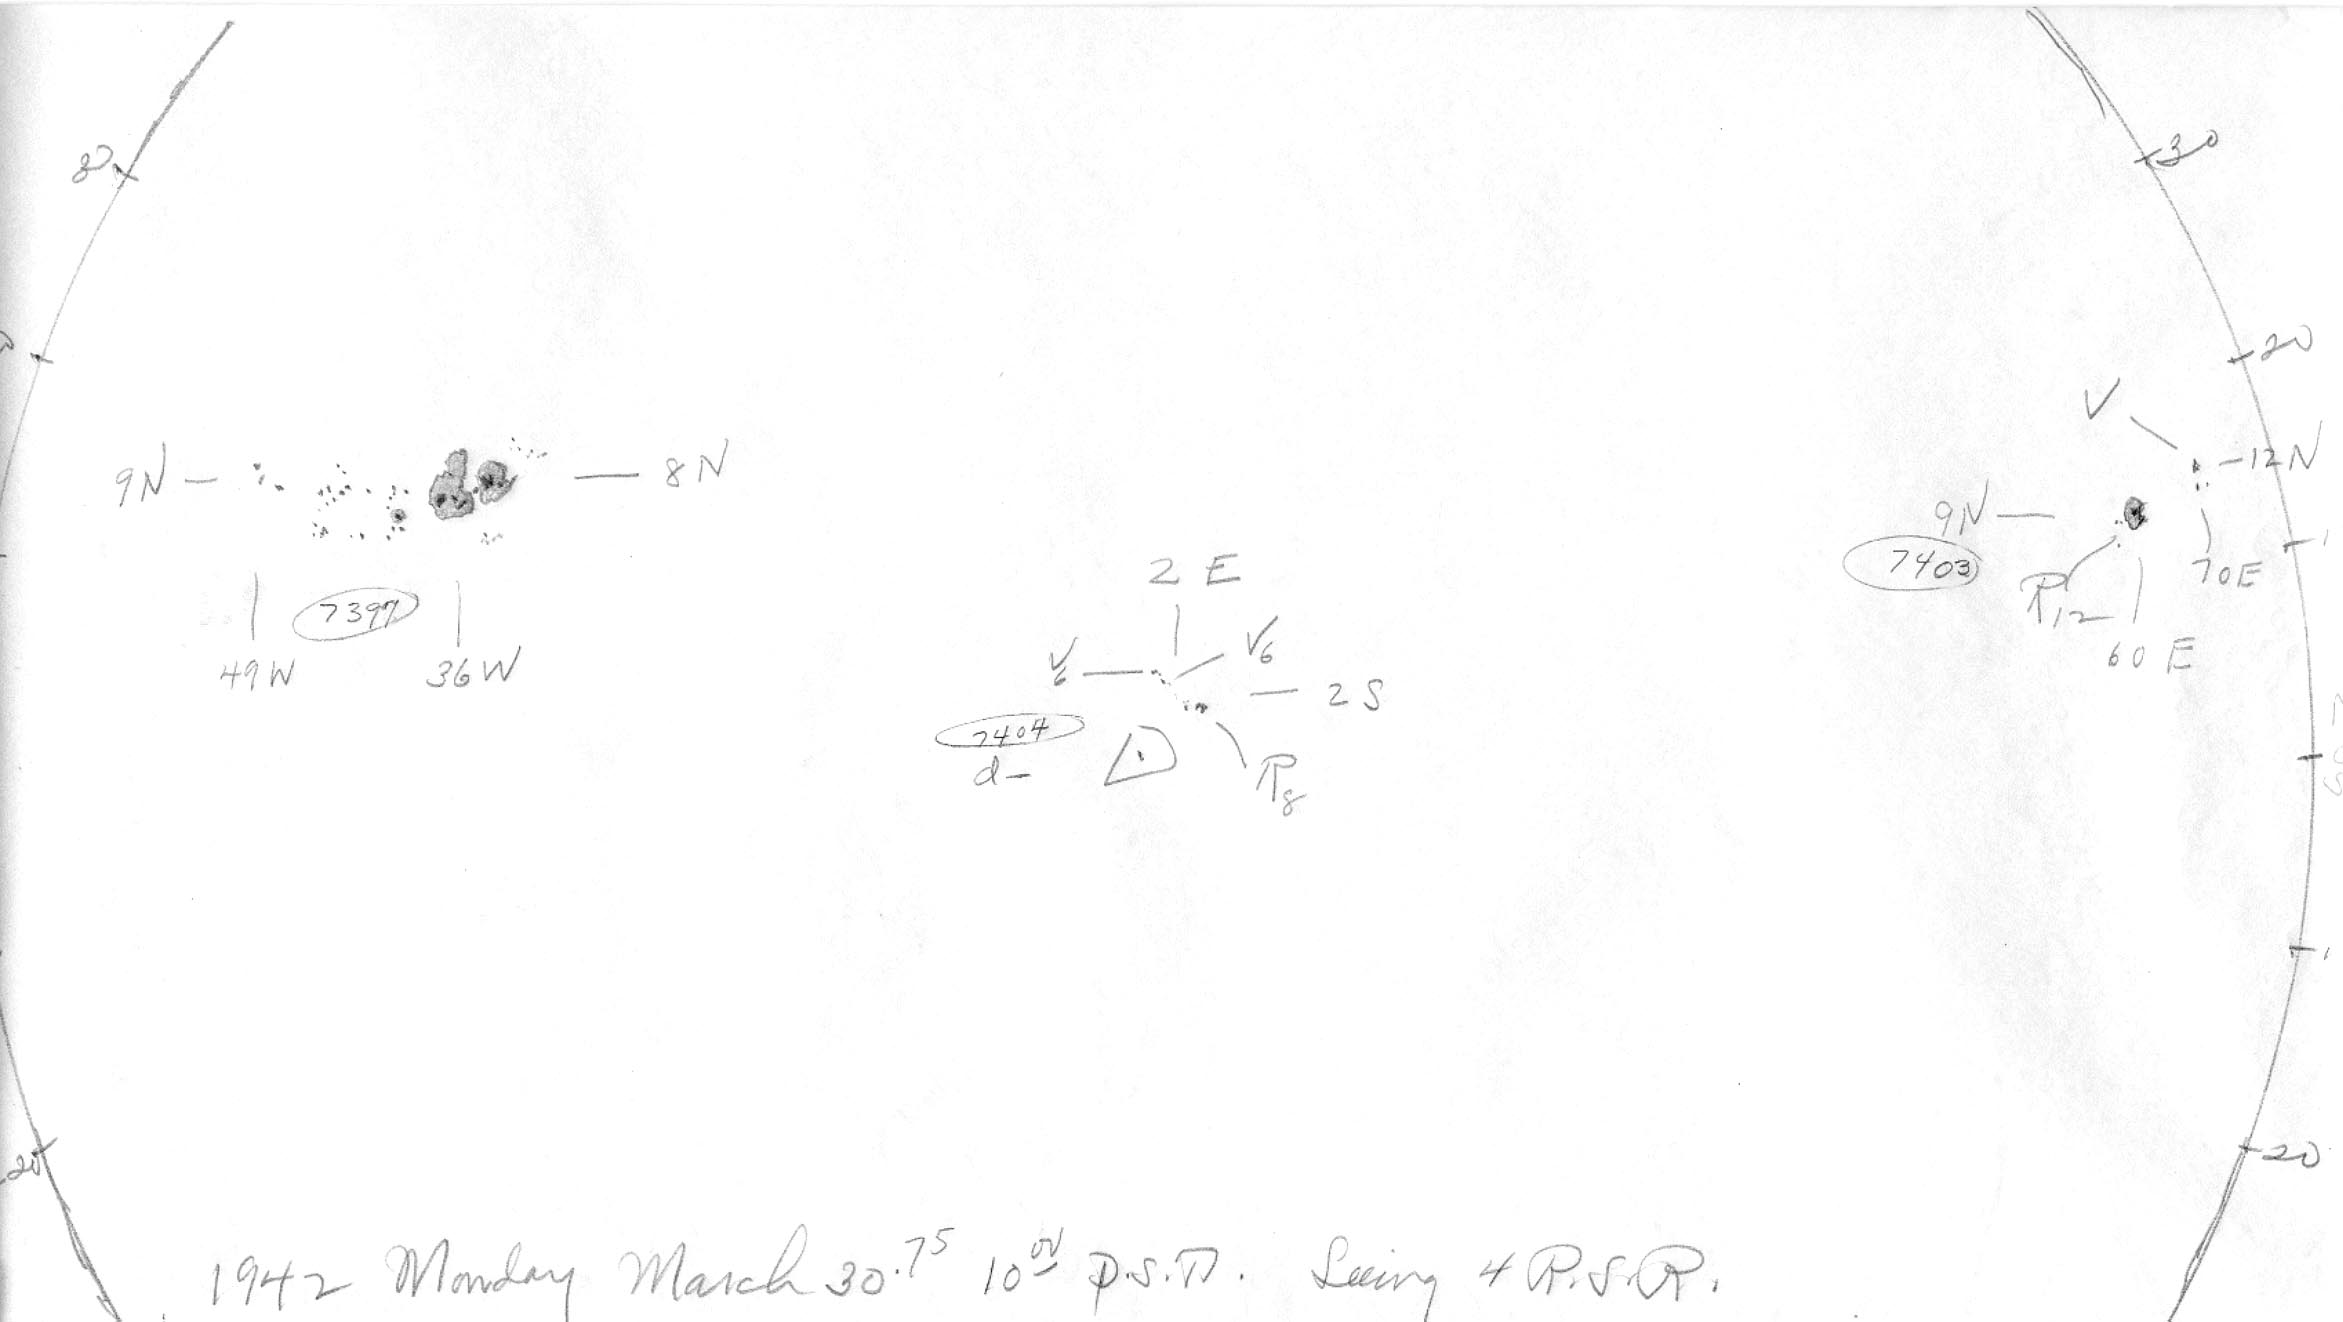 30
30
20
20
V
9N — — 8N
—12N
9N —
7403
R12
70E
60 E
2 E
7397
49W 36W
V6 V6
2 S
7404
d-
R8
20
20
1942 Monday March 30.75 10 00 P.S.T. Seeing 4 R.S.R.